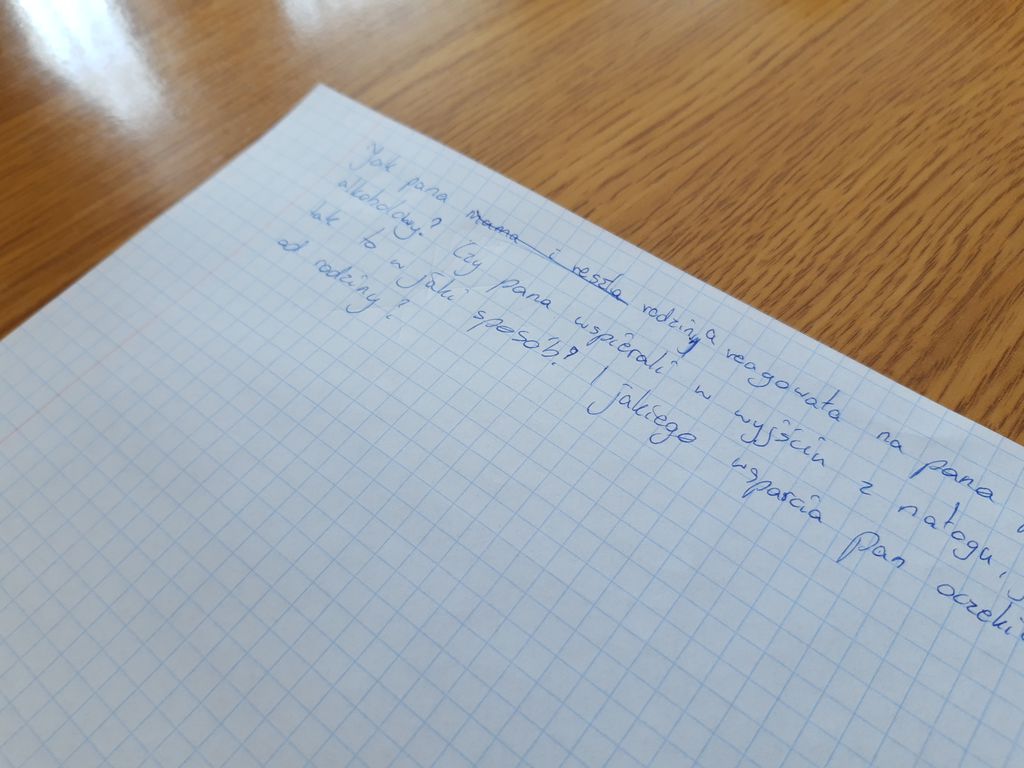 Jak pana mama i reszta rodziny a reagowała na pana
alkoholowy? Czy pana wspierali w wyjściu z nałogu,
tak to w jaki sposób? I jakiego wsparcia Pan oczeki
od rodziny?